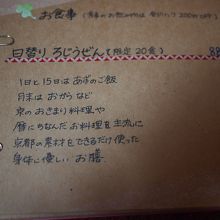 お食事
日替り ろじうぜん（限定20食） 88
1日と15日はあずのご飯
月末は おから など
京のおきまり料理や
暦にちなんだお料理を主流に
京都の素材をできるだけ使った
身体に優しい お膳